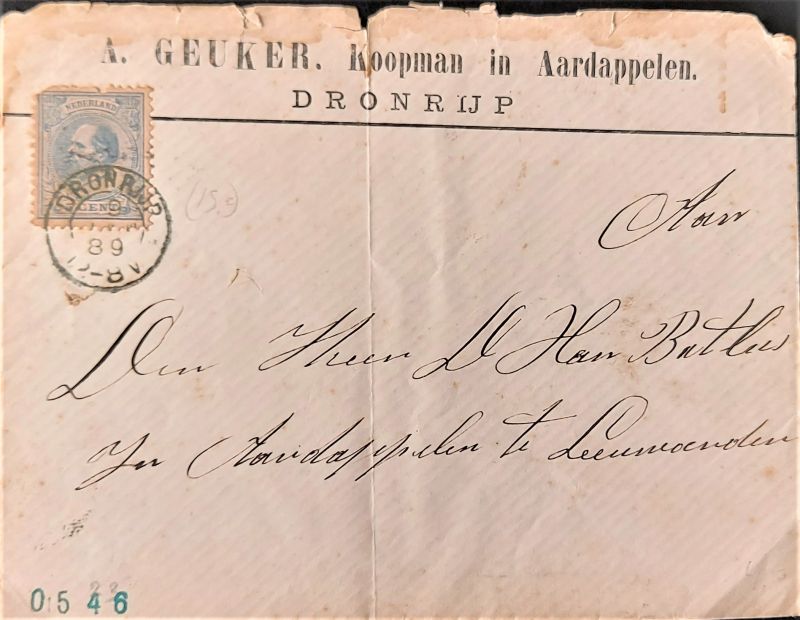 A. GEUKER. Koopman in Aardappelen.
DRONRIJP
NEDERLAND
CENT
DRONRIJP
89
(15.c)
Aan
Den Heer D Han
In Aardappelen te Leeuwarden
0546